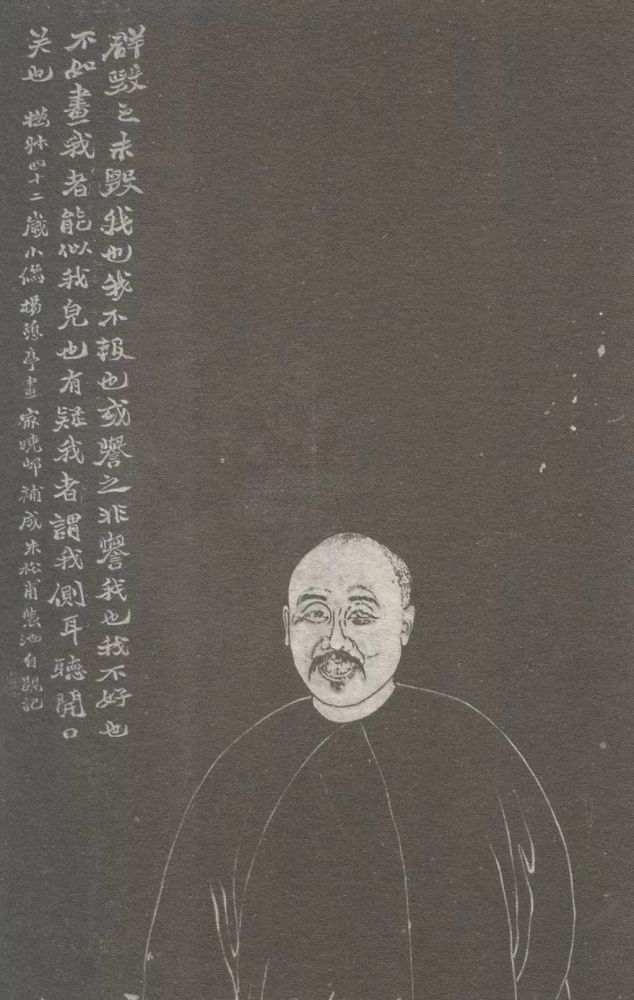 群毀之未毀我也我不報也或譽之非譽我也我不好也
不如畫我者能似我皃也有疑我者謂我側耳聽開口
笑也 撝叔四十二歲小像楊憩亭畫家曉邨補成朱松甫自觀記